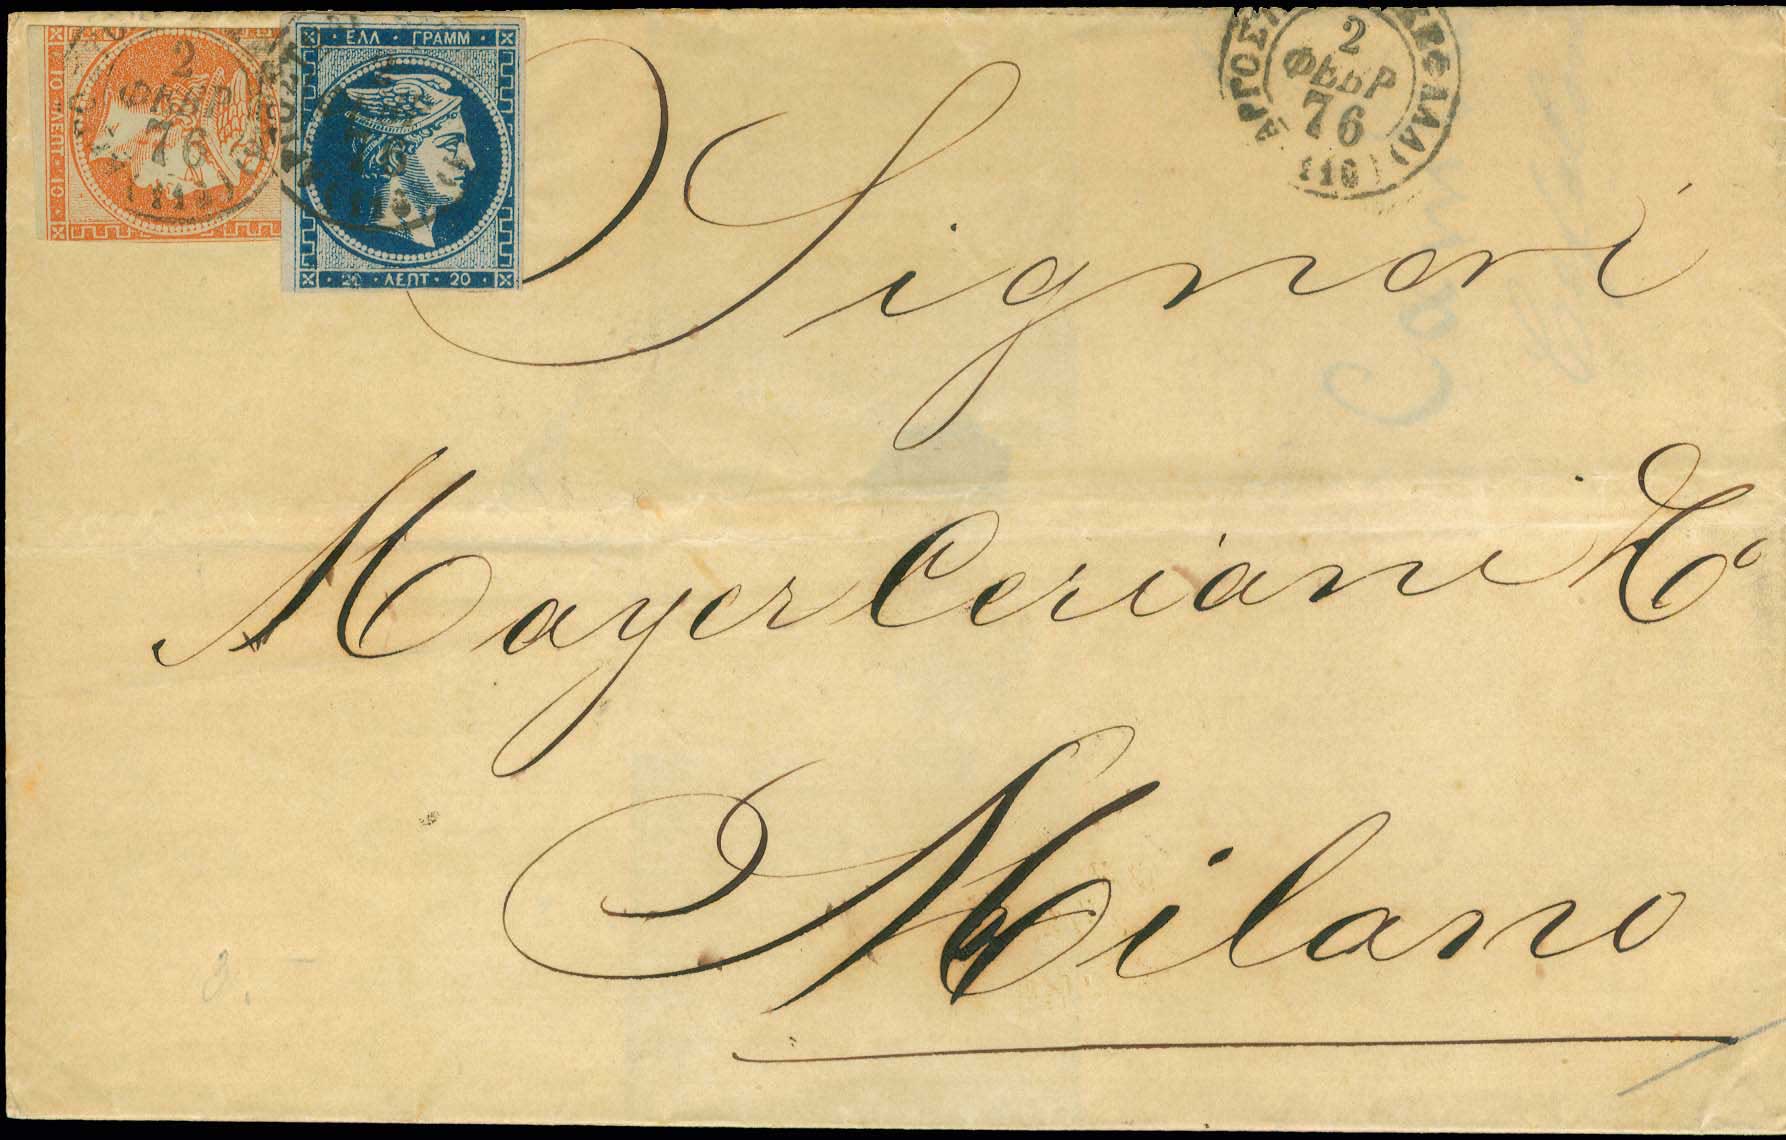 ΕΛΛ · ΓΡΑΜΜ
20 · ΛΕΠΤ · 20
10 · ΛΕΠΤ · 10
2
ΦΕΒΡ
76
2
ΦΕΒΡ
76
(116)
Signori
Mayer Ceriani & Co
Milano